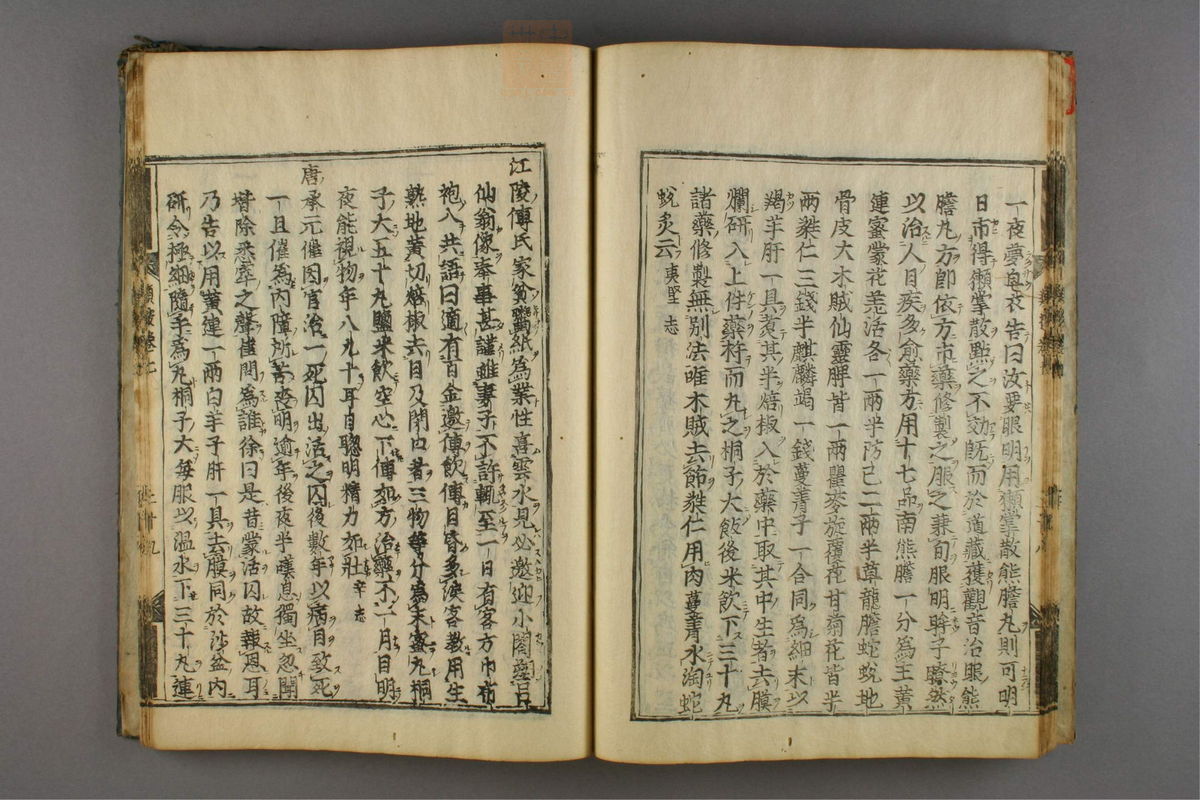 一夜夢皂衣告曰汝要眼明用獺掌散熊膽丸則可明
日市得獺掌散點之不效旣而於道藏獲觀音治眼熊
膽丸方卽依方市藥修製之服之兼旬眼明眸子瞭然
以治人目疾多愈藥方用十七品南熊膽一分爲主黃
連蜜蒙花羌活各一兩半防己二兩半草龍膽蛇蛻地
骨皮大木賊仙靈脾皆一兩瞿麥旋覆花甘菊花皆半
兩蕤仁三錢半麒麟竭一錢蔓菁子一合同爲細末以
羯羊肝一具煑其半焙椒入於藥中取其中生者去膜
爛研入上件藥杵而丸之桐子大飯後米飲下三十丸
諸藥修製無別法唯木賊去節蕤仁用肉蔓菁水淘蛇
蛻炙云夷堅志
江陵傅氏家貧鬻紙爲業性喜雲水見必邀迎小閣塑呂
仙翁像奉事甚謹雖妻子不許輒至一日有客方巾布
袍入共語曰適有百金邀傅飲傅目昏多淚客教用生
熟地黃切焙椒去目及閉口者三物等分爲末蜜丸桐
子大五十丸鹽米飲空心下傅如方治藥不一月目明
夜能視物年八九十耳目聰明精力如壯辛志
唐承元催因官治一死囚出活之囚後數年以病目致死
一旦催爲內障所苦喪明逾年後夜半嘆息獨坐忽聞
堦除悉窣之聲催問爲誰徐曰是昔蒙活囚故報恩耳
乃告以用黃連一兩白羊子肝一具去膜同於沙盆內
研令極細隨手爲丸桐子大每服以溫水下三十丸連